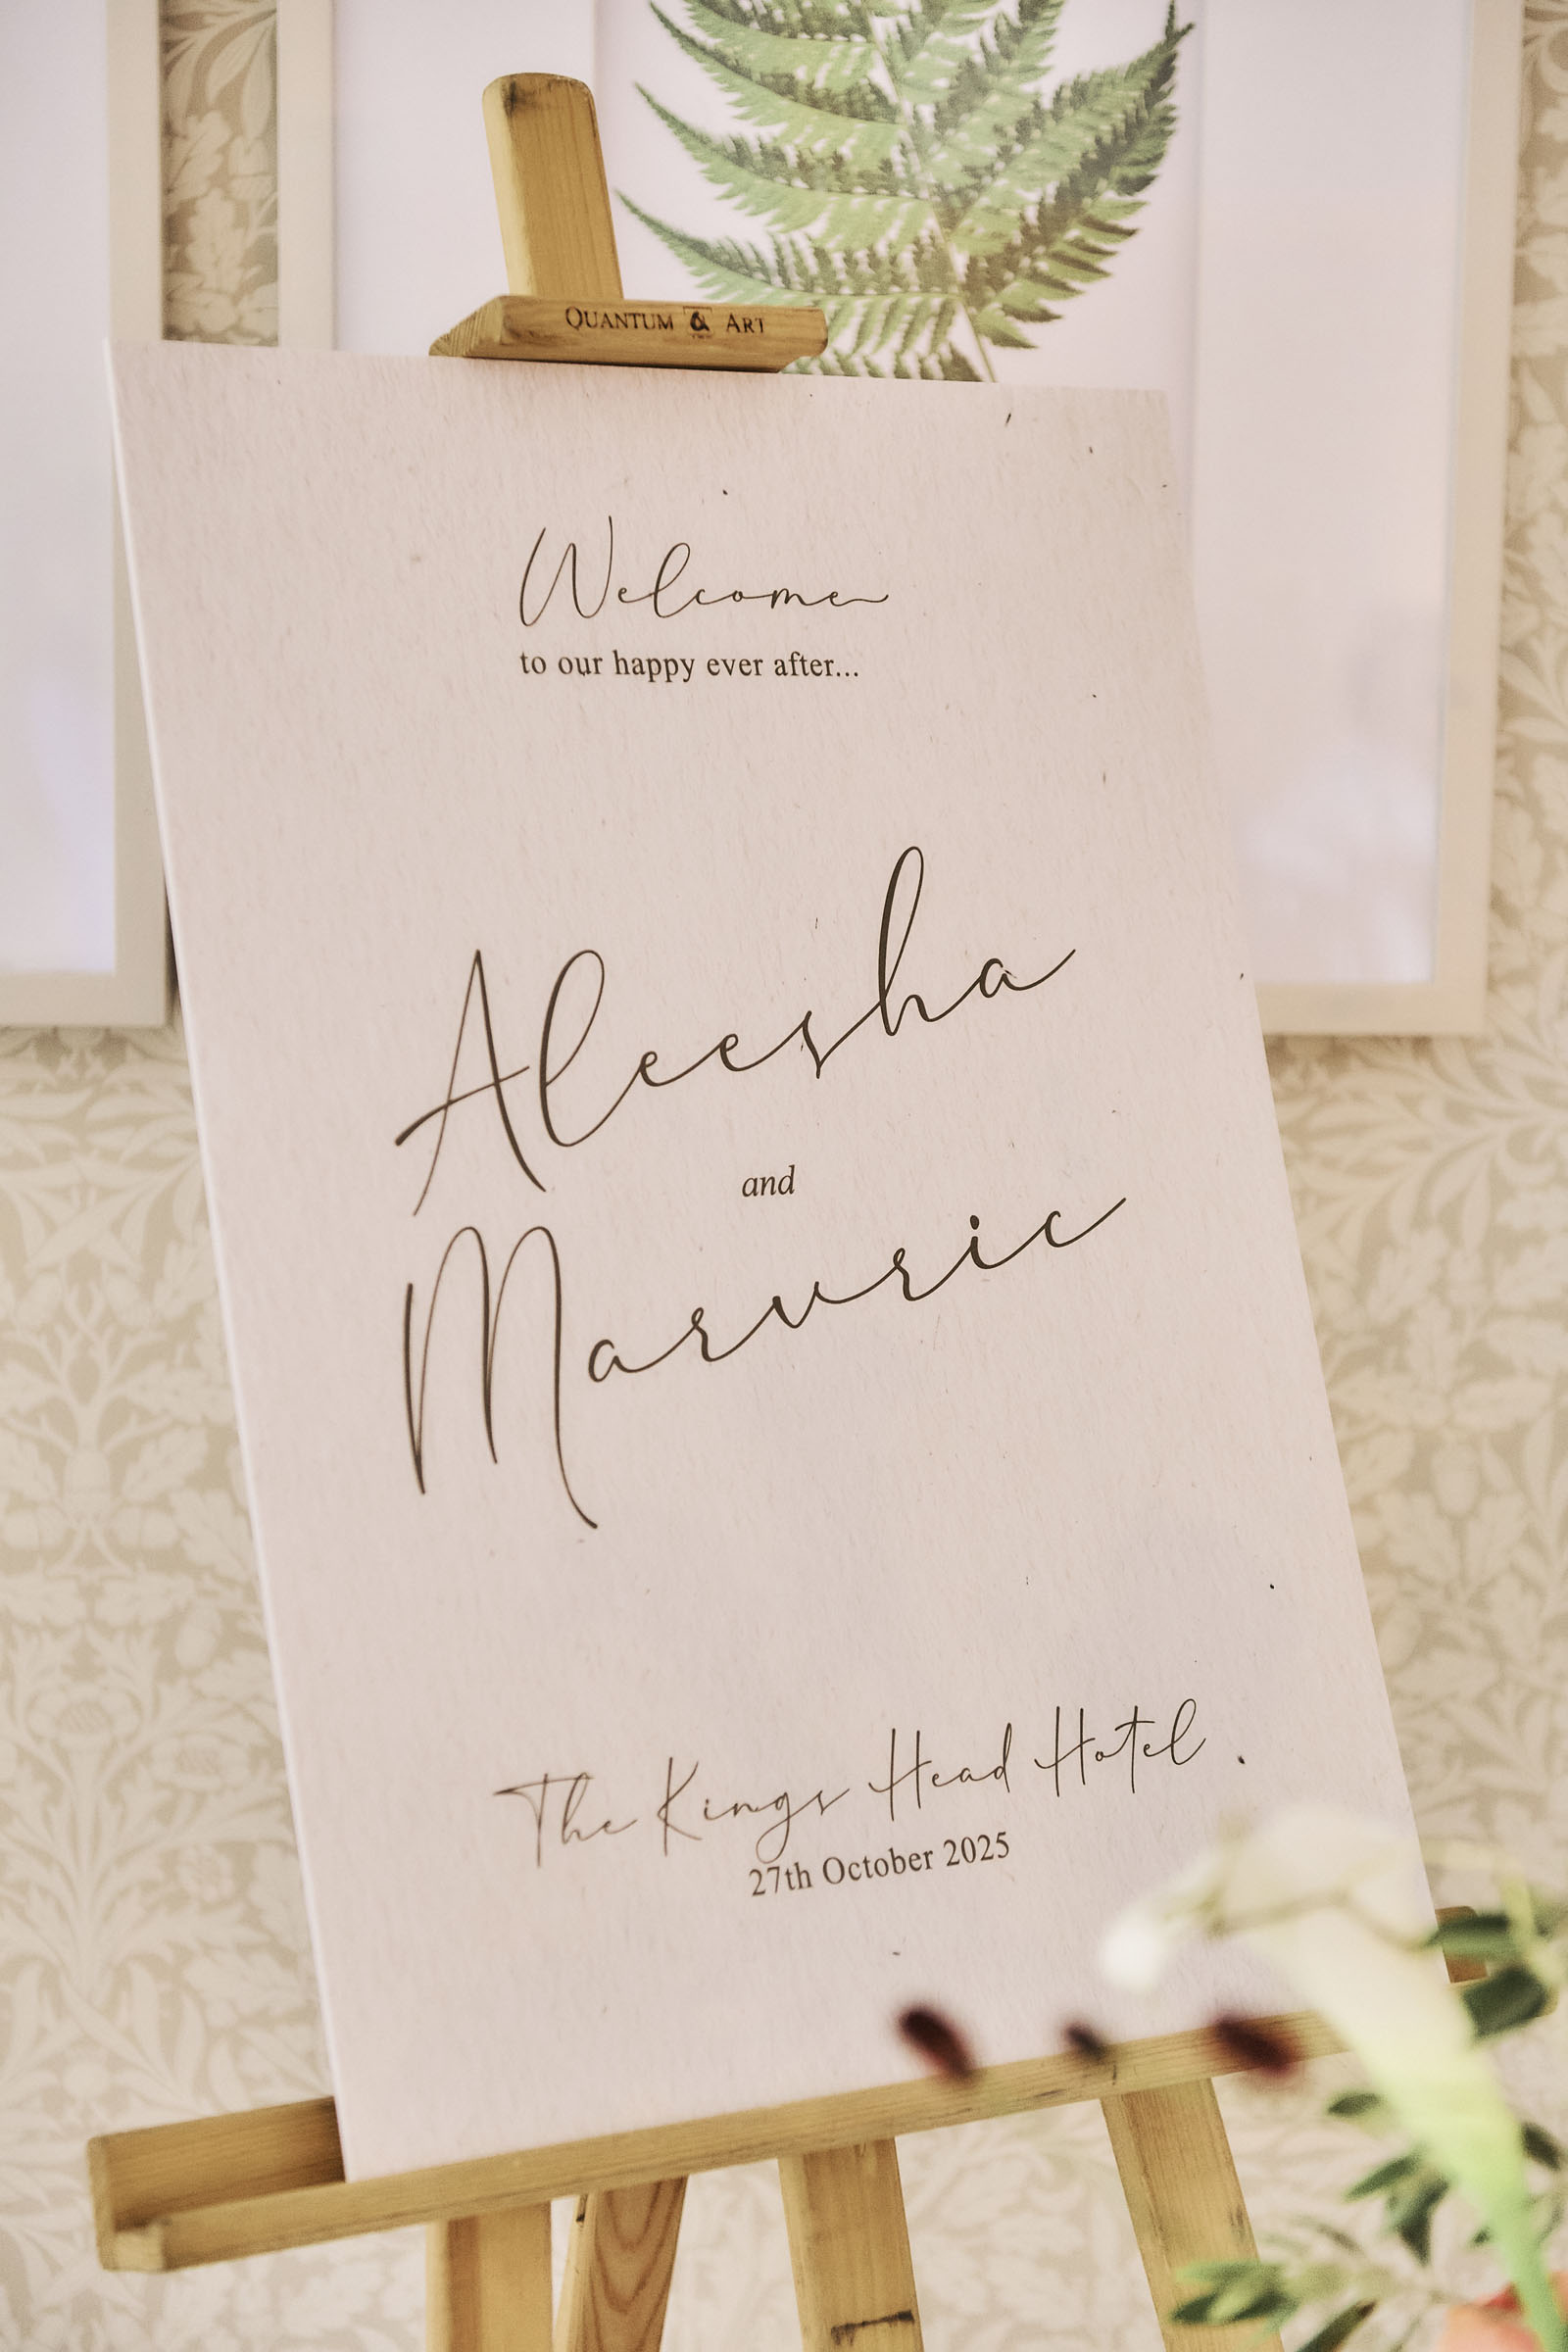 QUANTUM & ART
Welcome
to our happy ever after...
Aleesha
and
Marvric
The Kings Head Hotel
27th October 2025